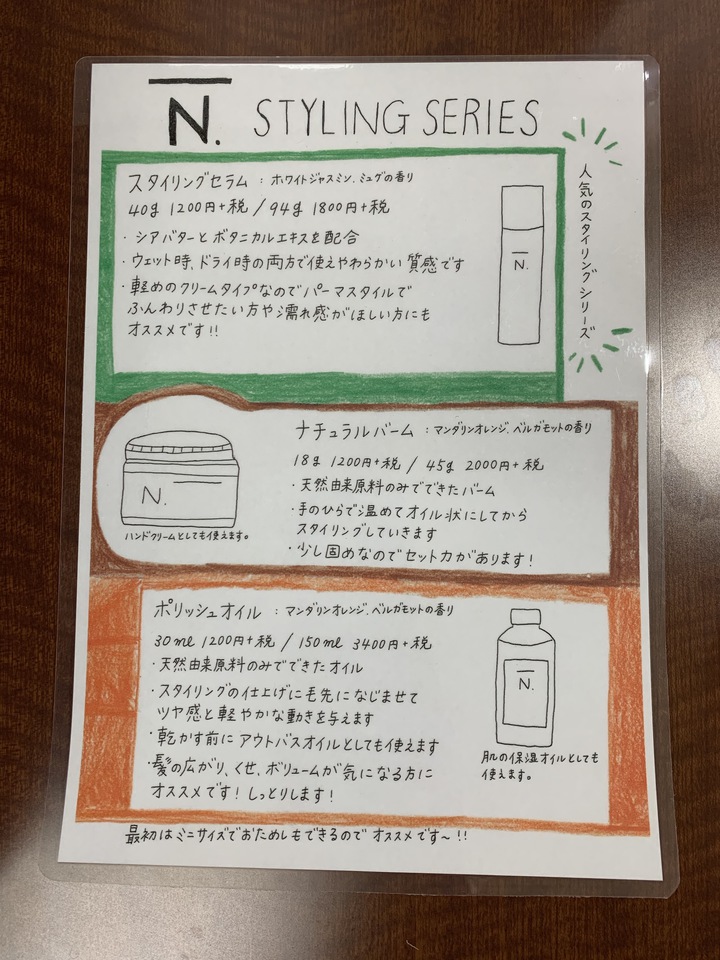 N. STYLING SERIES
人気のスタイリングシリーズ
スタイリングセラム : ホワイトジャスミン、ミュゲの香り
40g 1200円+税 / 94g 1800円+税
・シアバターとボタニカルエキスを配合
・ウェット時、ドライ時の両方で使えやわらかい質感です
・軽めのクリームタイプなのでパーマスタイルで
ふんわりさせたい方や濡れ感がほしい方にも
オススメです!!
N.
ナチュラルバーム : マンダリンオレンジ、ベルガモットの香り
18g 1200円+税 / 45g 2000円+税
・天然由来原料のみでできたバーム
・手のひらで温めてオイル状にしてから
スタイリングしていきます
・少し固めなのでセット力があります!
N.
ハンドクリームとしても使えます。
ポリッシュオイル : マンダリンオレンジ、ベルガモットの香り
30ml 1200円+税 / 150ml 3400円+税
・天然由来原料のみでできたオイル
・スタイリングの仕上げに毛先になじませて
ツヤ感と軽やかな動きを与えます
・乾かす前にアウトバスオイルとしても使えます
・髪の広がり、くせ、ボリュームが気になる方に
オススメです!しっとりします!
N.
肌の保湿オイルとしても
使えます。
最初はミニサイズでおためしもできるのでオススメです~!!